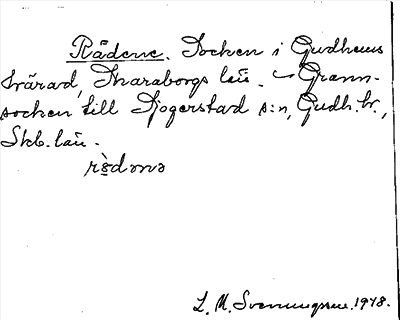 Rådene. Socken i Gudhems
härad, Skaraborgs län. – Grann-
socken till Djogerstad s:n, Gudh. hr.,
Skb. län.
rɔ̀dənə
L. M. Svenungsson. 1978.